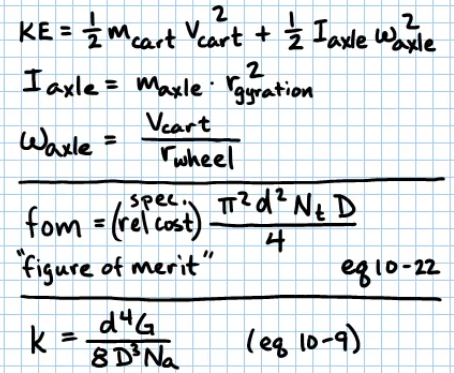 KE = 1/2 m_cart V_cart^2 + 1/2 I_axle ω_axle^2
I_axle = m_axle · r_gyration^2
ω_axle = V_cart / r_wheel
fom = (spec. rel cost) π^2 d^2 N_t D / 4
"figure of merit" eq 10-22
k = d^4 G / 8 D^3 Na (eq 10-9)